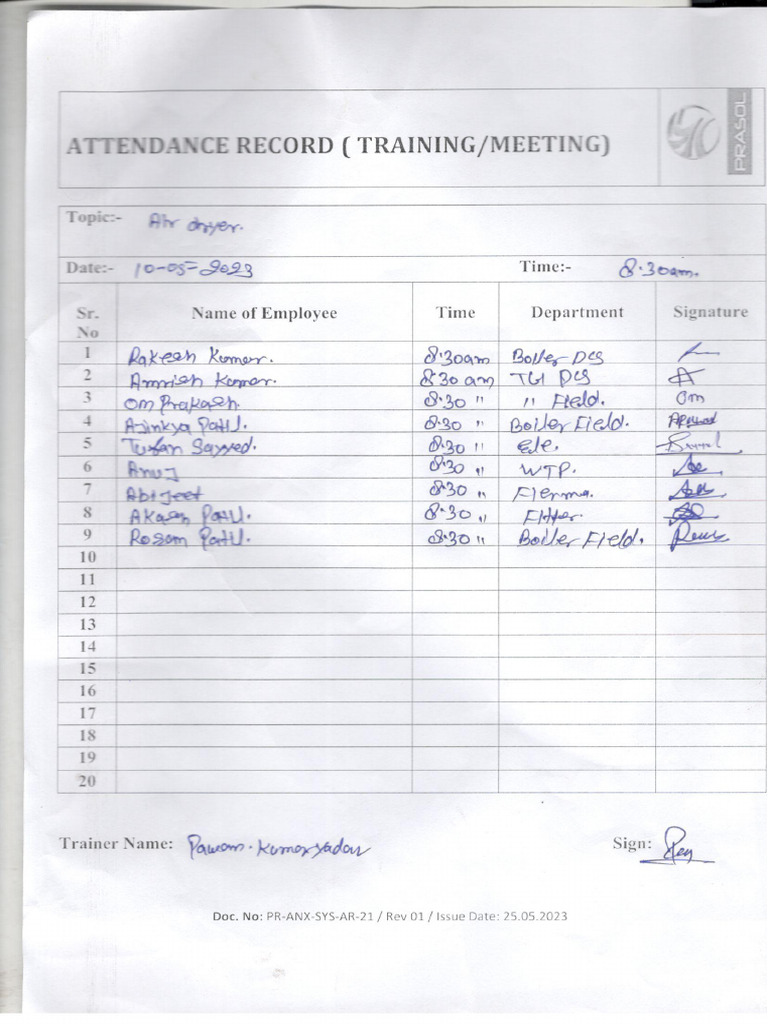 ATTENDANCE RECORD ( TRAINING/MEETING)
PRASOL
Topic:- Air dryer.
Date:- 10-05-2023 Time:- 8.30am.
Sr. No Name of Employee Time Department Signature
1 Rakesh Kumar. 8.30am Boiler DCS
2 Amrish Kumar. 8.30 am TG1 DCS
3 Om Prakash. 8.30 " " Field. Om
4 Ajinkya Patil. 8.30 " Boiler Field.
5 Tufan Sayyed. 8.30 " ele.
6 Anuj 8.30 " WTP.
7 Abijeet 8.30 "
8 Akash Patil. 8.30 " Fitter.
9 Rosam Patil. 8.30 " Boiler Field.
10
11
12
13
14
15
16
17
18
19
20
Trainer Name: Pawan Kumar Yadav Sign:
Doc. No: PR-ANX-SYS-AR-21 / Rev 01 / Issue Date: 25.05.2023